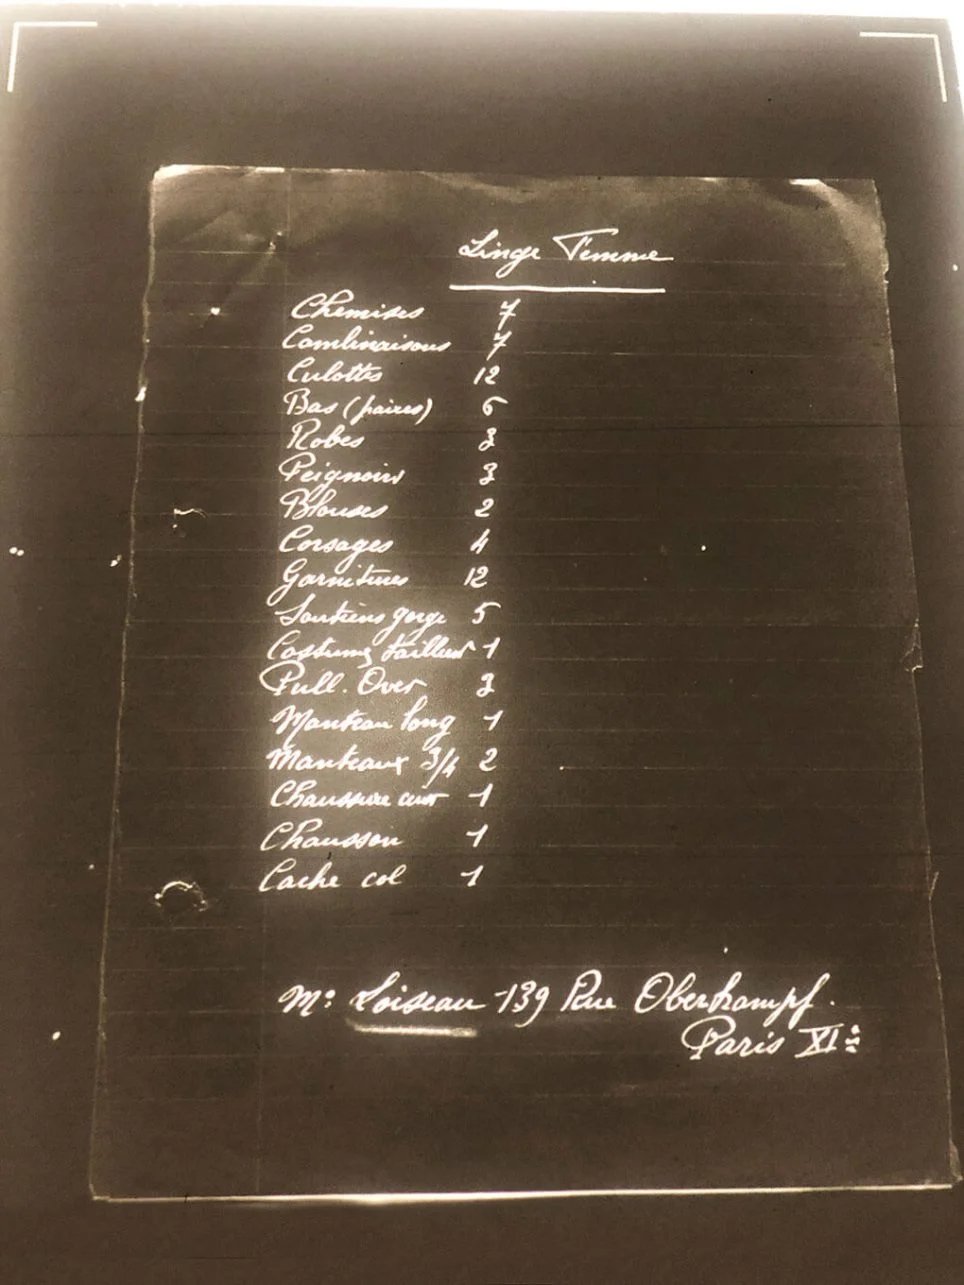 Linge Femme
Chemises 7
Combinaisons 7
Culottes 12
Bas (paires) 6
Robes 3
Peignoirs 3
Blouses 2
Corsages 4
Garnitures 12
Soutiens gorge 5
Costume tailleur 1
Pull. Over 3
Manteau long 1
Manteaux 3/4 2
Chaussure cuir 1
Chausson 1
Cache col 1
Me: Loiseau - 139 Rue Oberkampf.
Paris XIe